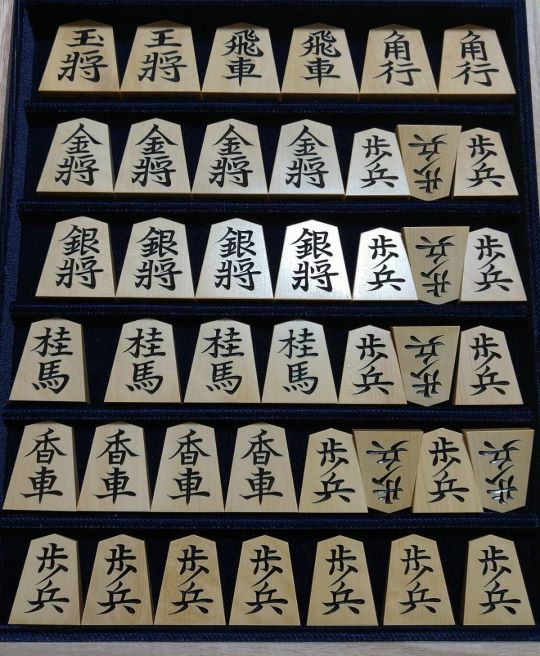 玉將 王將 飛車 飛車 角行 角行
金將 金將 金將 金將 歩兵 歩兵 歩兵
銀將 銀將 銀將 銀將 歩兵 歩兵 歩兵
桂馬 桂馬 桂馬 桂馬 歩兵 歩兵 歩兵
香車 香車 香車 香車 歩兵 歩兵 歩兵 歩兵
歩兵 歩兵 歩兵 歩兵 歩兵 歩兵 歩兵